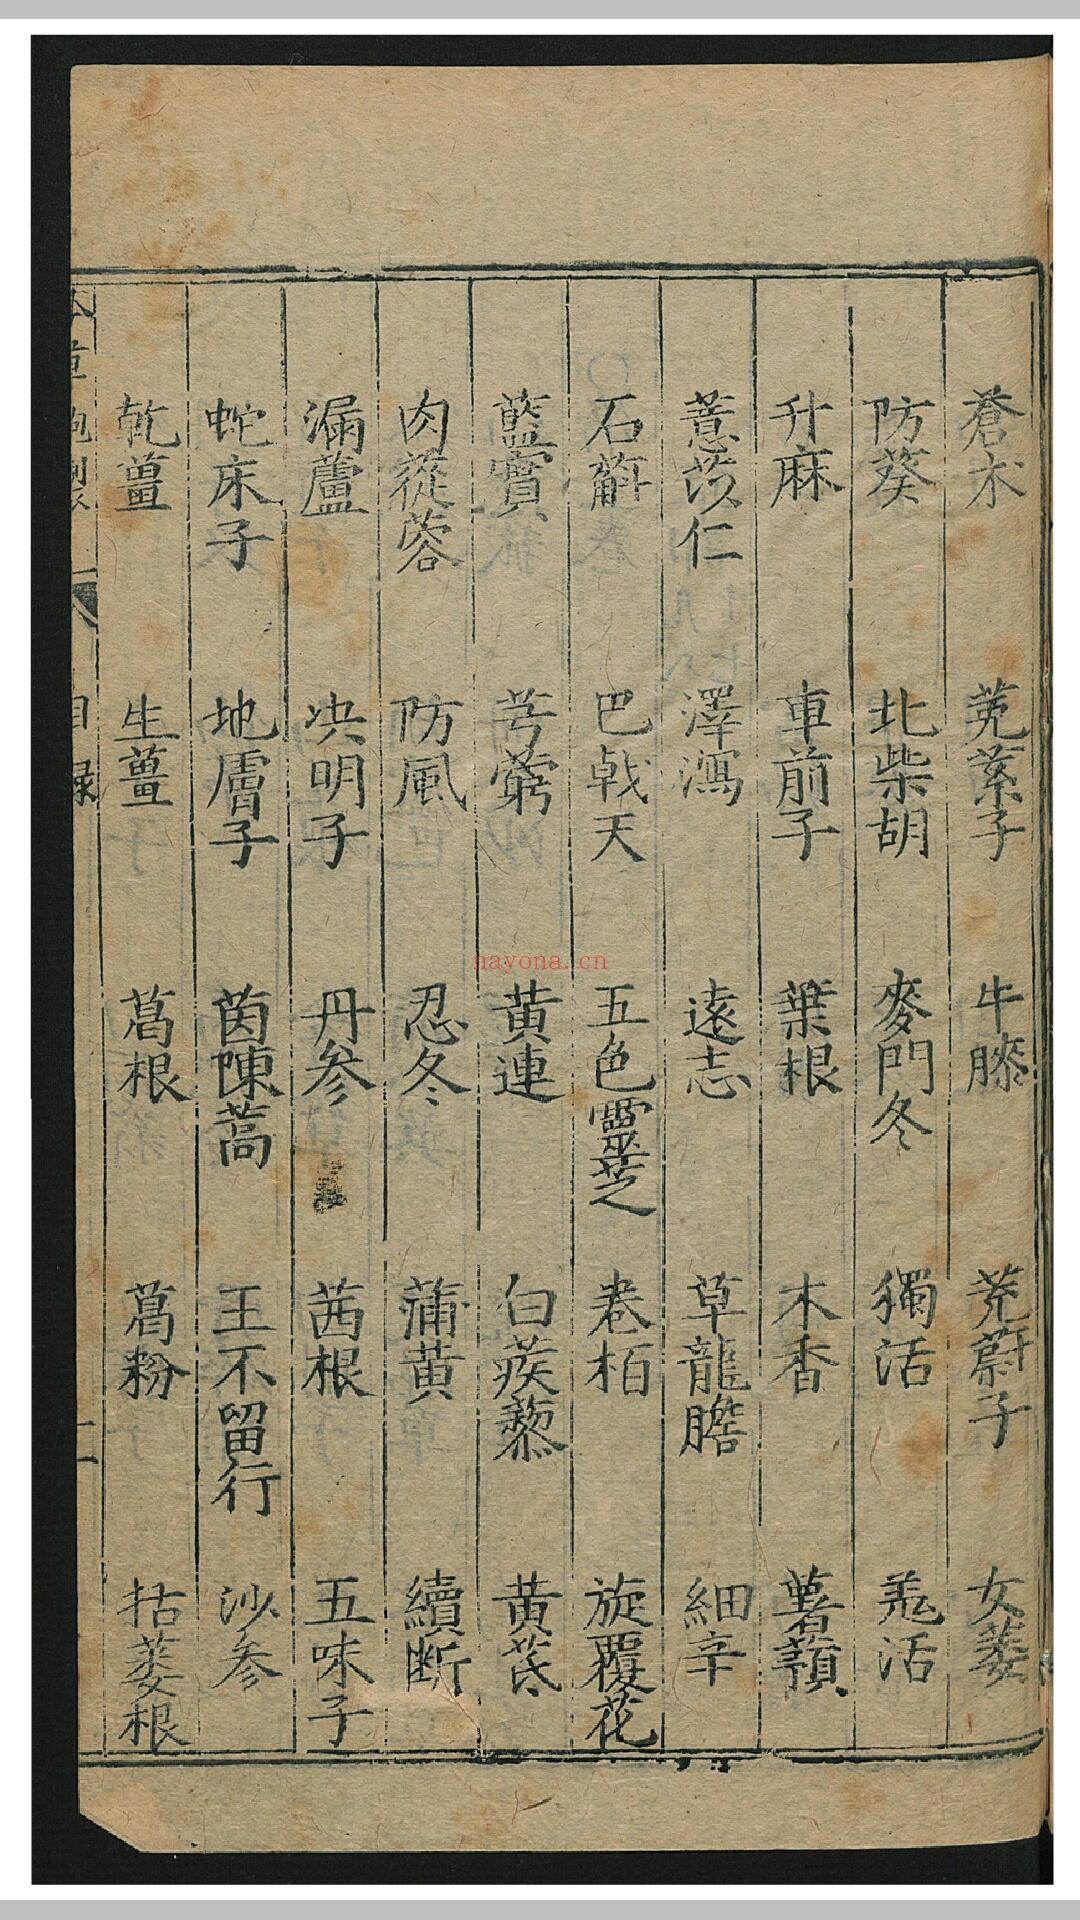 蒼朮　菟絲子　牛膝　茺蔚子　女萎
防葵　北柴胡　麥門冬　獨活　羗活
升麻　車前子　葉根　木香　薯蕷
薏苡仁　澤瀉　遠志　草龍膽　細辛
石斛　巴戟天　五色靈芝　卷栢　旋覆花
藍實　芎藭　黄連　白蒺藜　黄芪
肉蓯蓉　防風　忍冬　蒲黄　續斷
漏蘆　决明子　丹參　茜根　五味子
蛇床子　地膚子　茵陳蒿　王不留行　沙參
乾薑　生薑　葛根　葛粉　括蔞根
目錄　二
nayona.cn